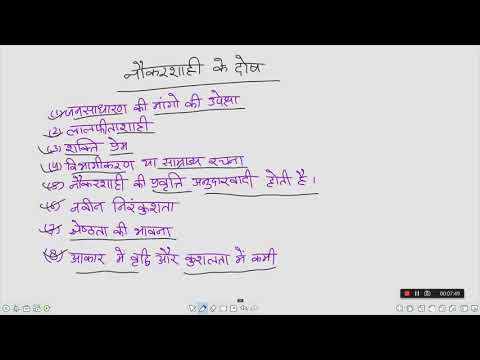 नौकरशाही के दोष
(1) जनसाधारण की मांगो की उपेक्षा
(2) लालफीताशाही
(3) शक्ति प्रेम
(4) विभागीकरण या साम्राज्य रचना
(5) नौकरशाही की प्रवृत्ति अनुदारवादी होती है।
(6) नवीन निरंकुशता
(7) श्रेष्ठता की भावना
(8) आकार में वृद्धि और कुशलता में कमी
00:07:49